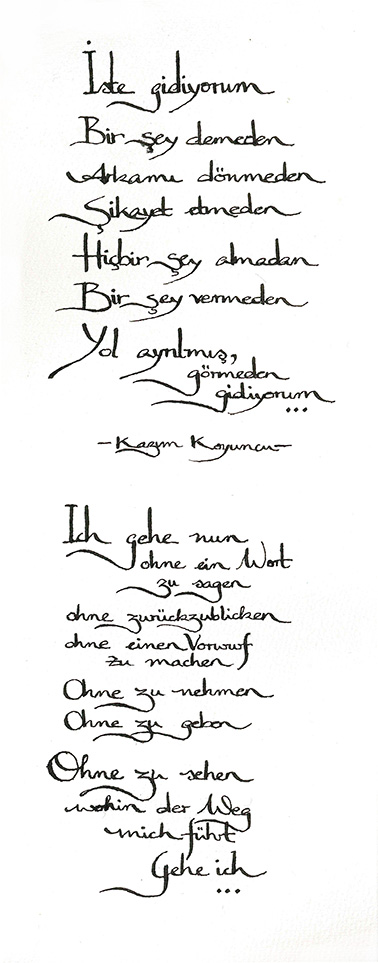 İşte gidiyorum
Bir şey demeden
Arkamı dönmeden
Şikayet etmeden
Hiçbir şey almadan
Bir şey vermeden
Yol ayrılmış,
görmeden
gidiyorum
...
-Kazım Koyuncu-
Ich gehe nun
ohne ein Wort
zu sagen
ohne zurückzublicken
ohne einen Vorwurf
zu machen
Ohne zu nehmen
Ohne zu geben
Ohne zu sehen
wohin der Weg
mich führt
Gehe ich
...